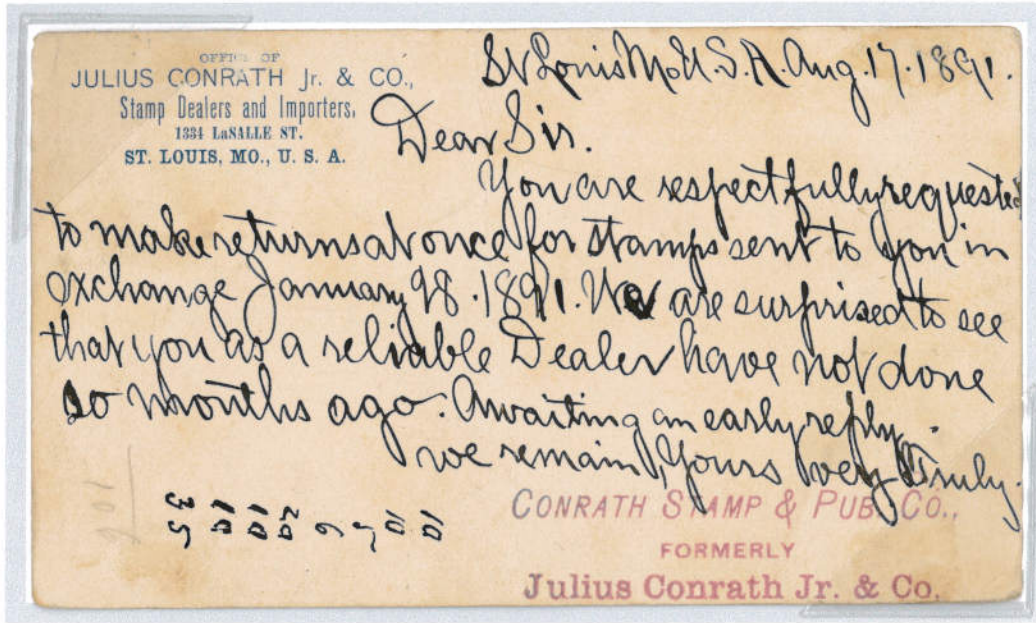 OFFICE OF
JULIUS CONRATH Jr. & CO.,
Stamp Dealers and Importers.
1334 LaSALLE ST.
ST. LOUIS, MO., U. S. A.
St Louis Mo. U.S.A. Aug. 17. 1891.
Dear Sir.
You are respectfully requested
to make returns at once for stamps sent to you in
exchange January 28. 1891. We are surprised to see
that you as a reliable Dealer have not done
so months ago. Awaiting an early reply.
we remain, Yours very Truly.
CONRATH STAMP & PUB. CO.,
FORMERLY
Julius Conrath Jr. & Co.